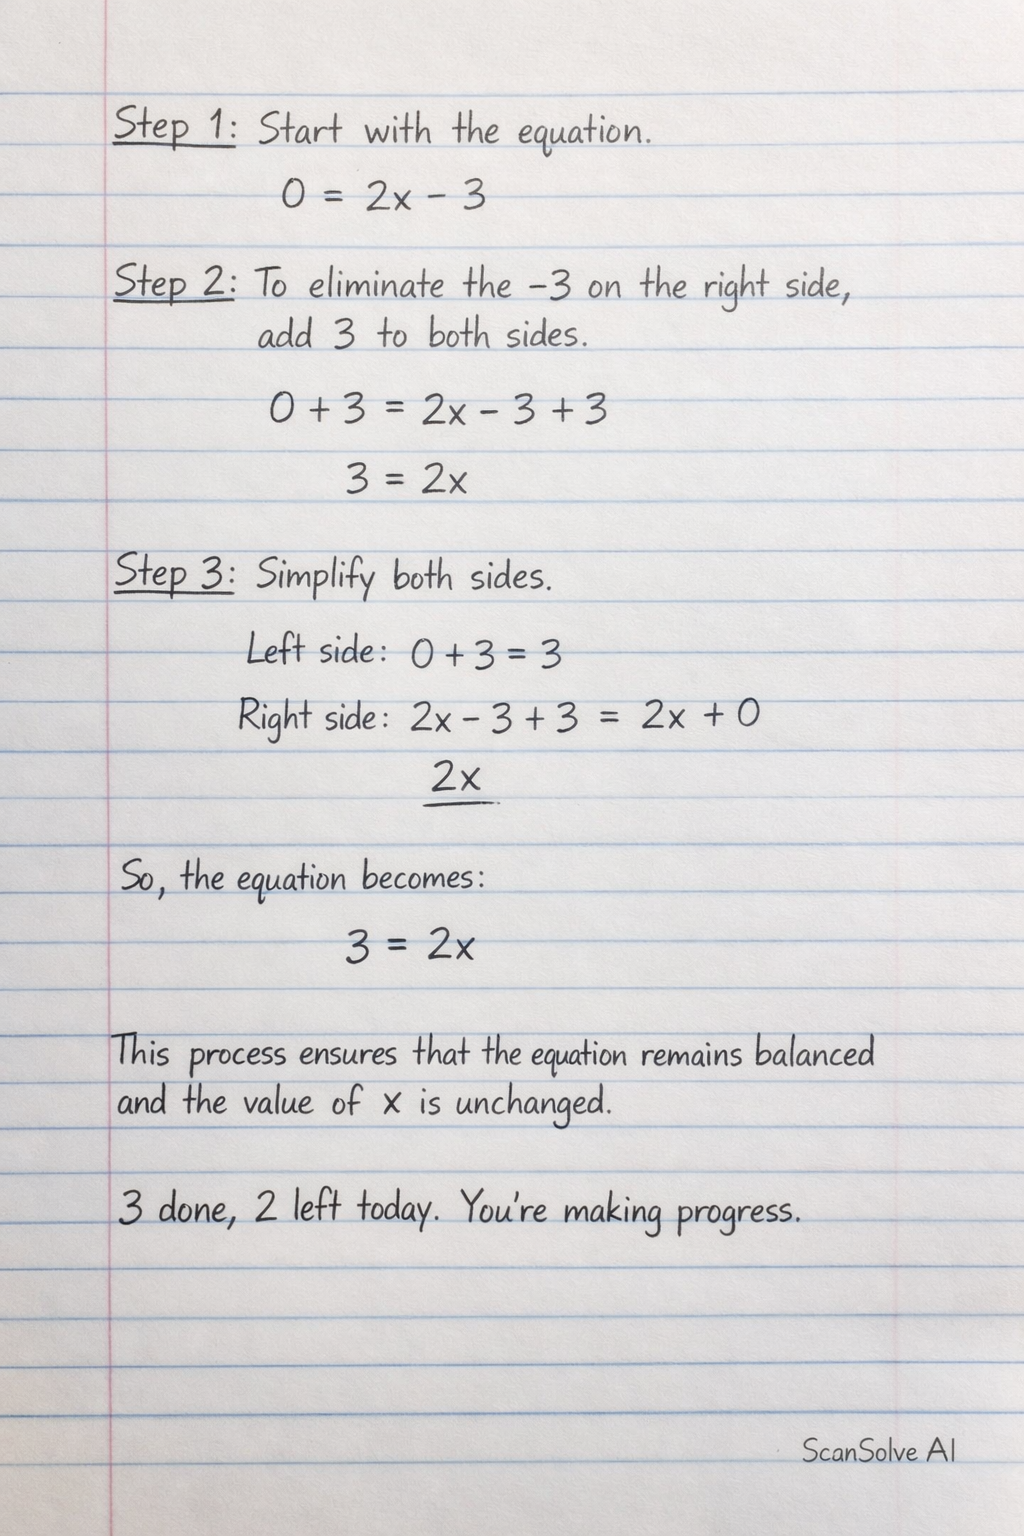 Step 1: Start with the equation.
0 = 2x - 3
Step 2: To eliminate the -3 on the right side,
add 3 to both sides.
0 + 3 = 2x - 3 + 3
3 = 2x
Step 3: Simplify both sides.
Left side: 0 + 3 = 3
Right side: 2x - 3 + 3 = 2x + 0
2x
So, the equation becomes:
3 = 2x
This process ensures that the equation remains balanced
and the value of x is unchanged.
3 done, 2 left today. You're making progress.
ScanSolve AI